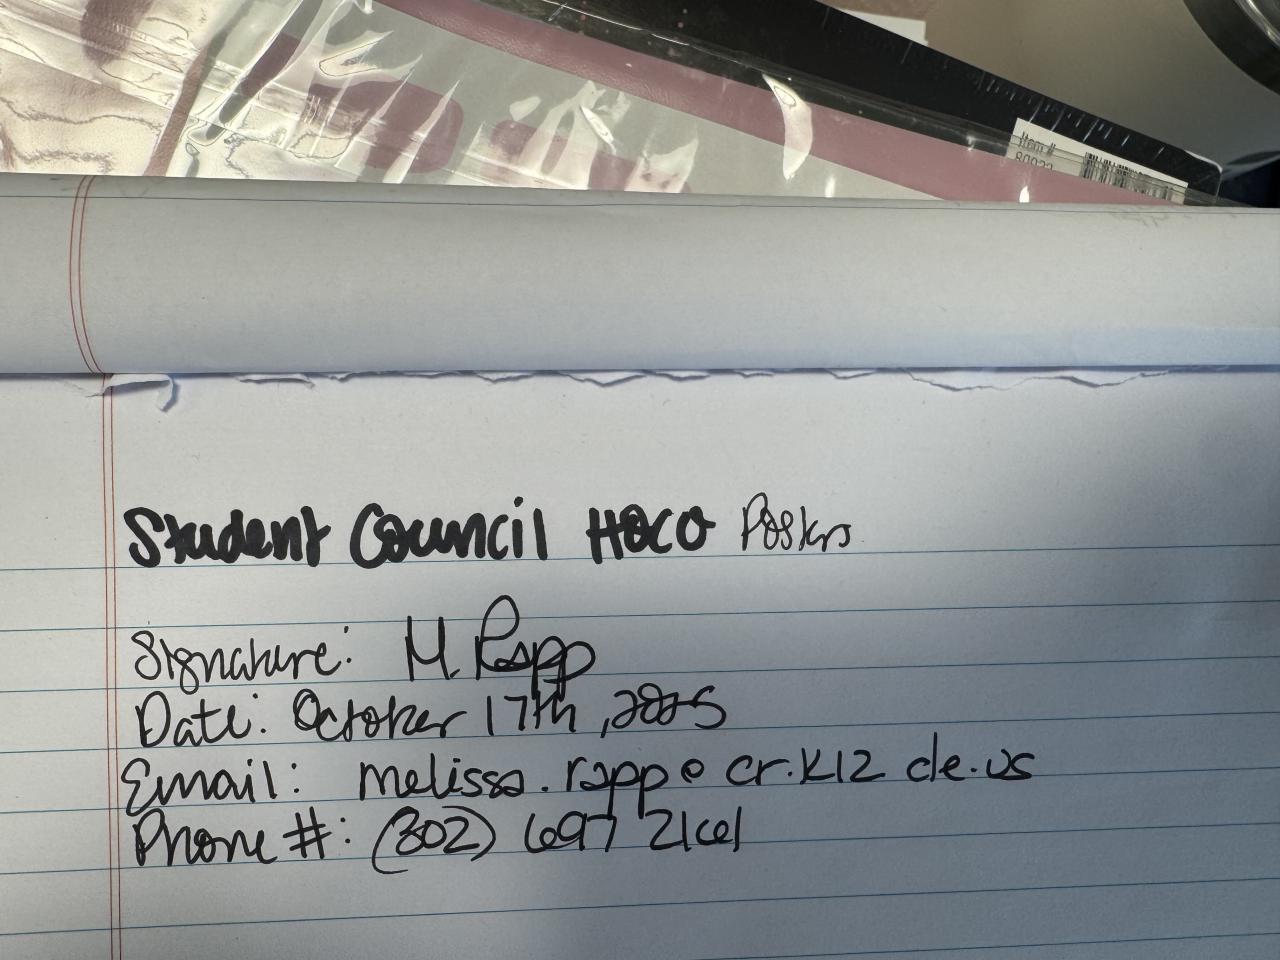 Item #
80922
Student Council HOCO Posters
Signature: M. Rapp
Date: October 17th, 2025
Email: melissa.rapp@cr.k12 de.us
Phone #: (302) 697 2161